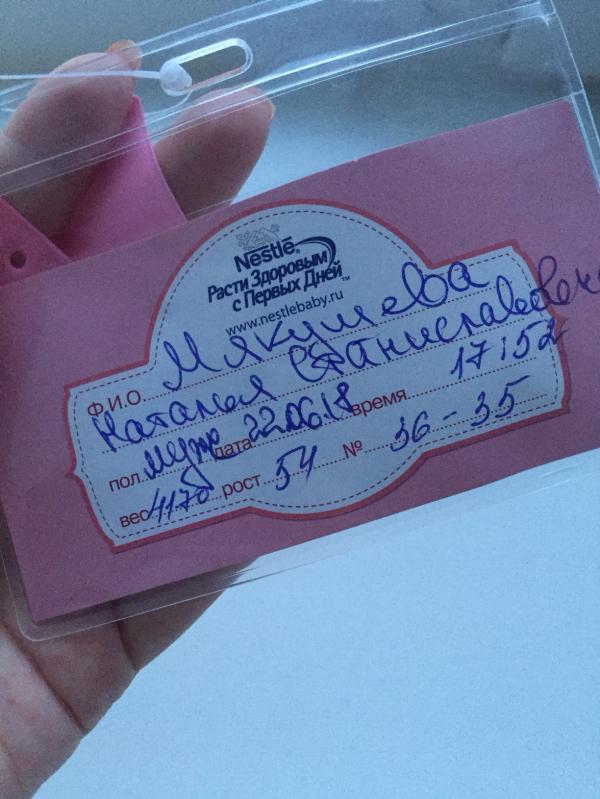 Nestlé®
Расти Здоровым
с Первых Дней™
www.nestlebaby.ru
Ф.И.О. Мякушева
Наталья Станиславовна
пол муж дата 22.06.18 время 17:52
вес 4170 рост 54 № 36-35